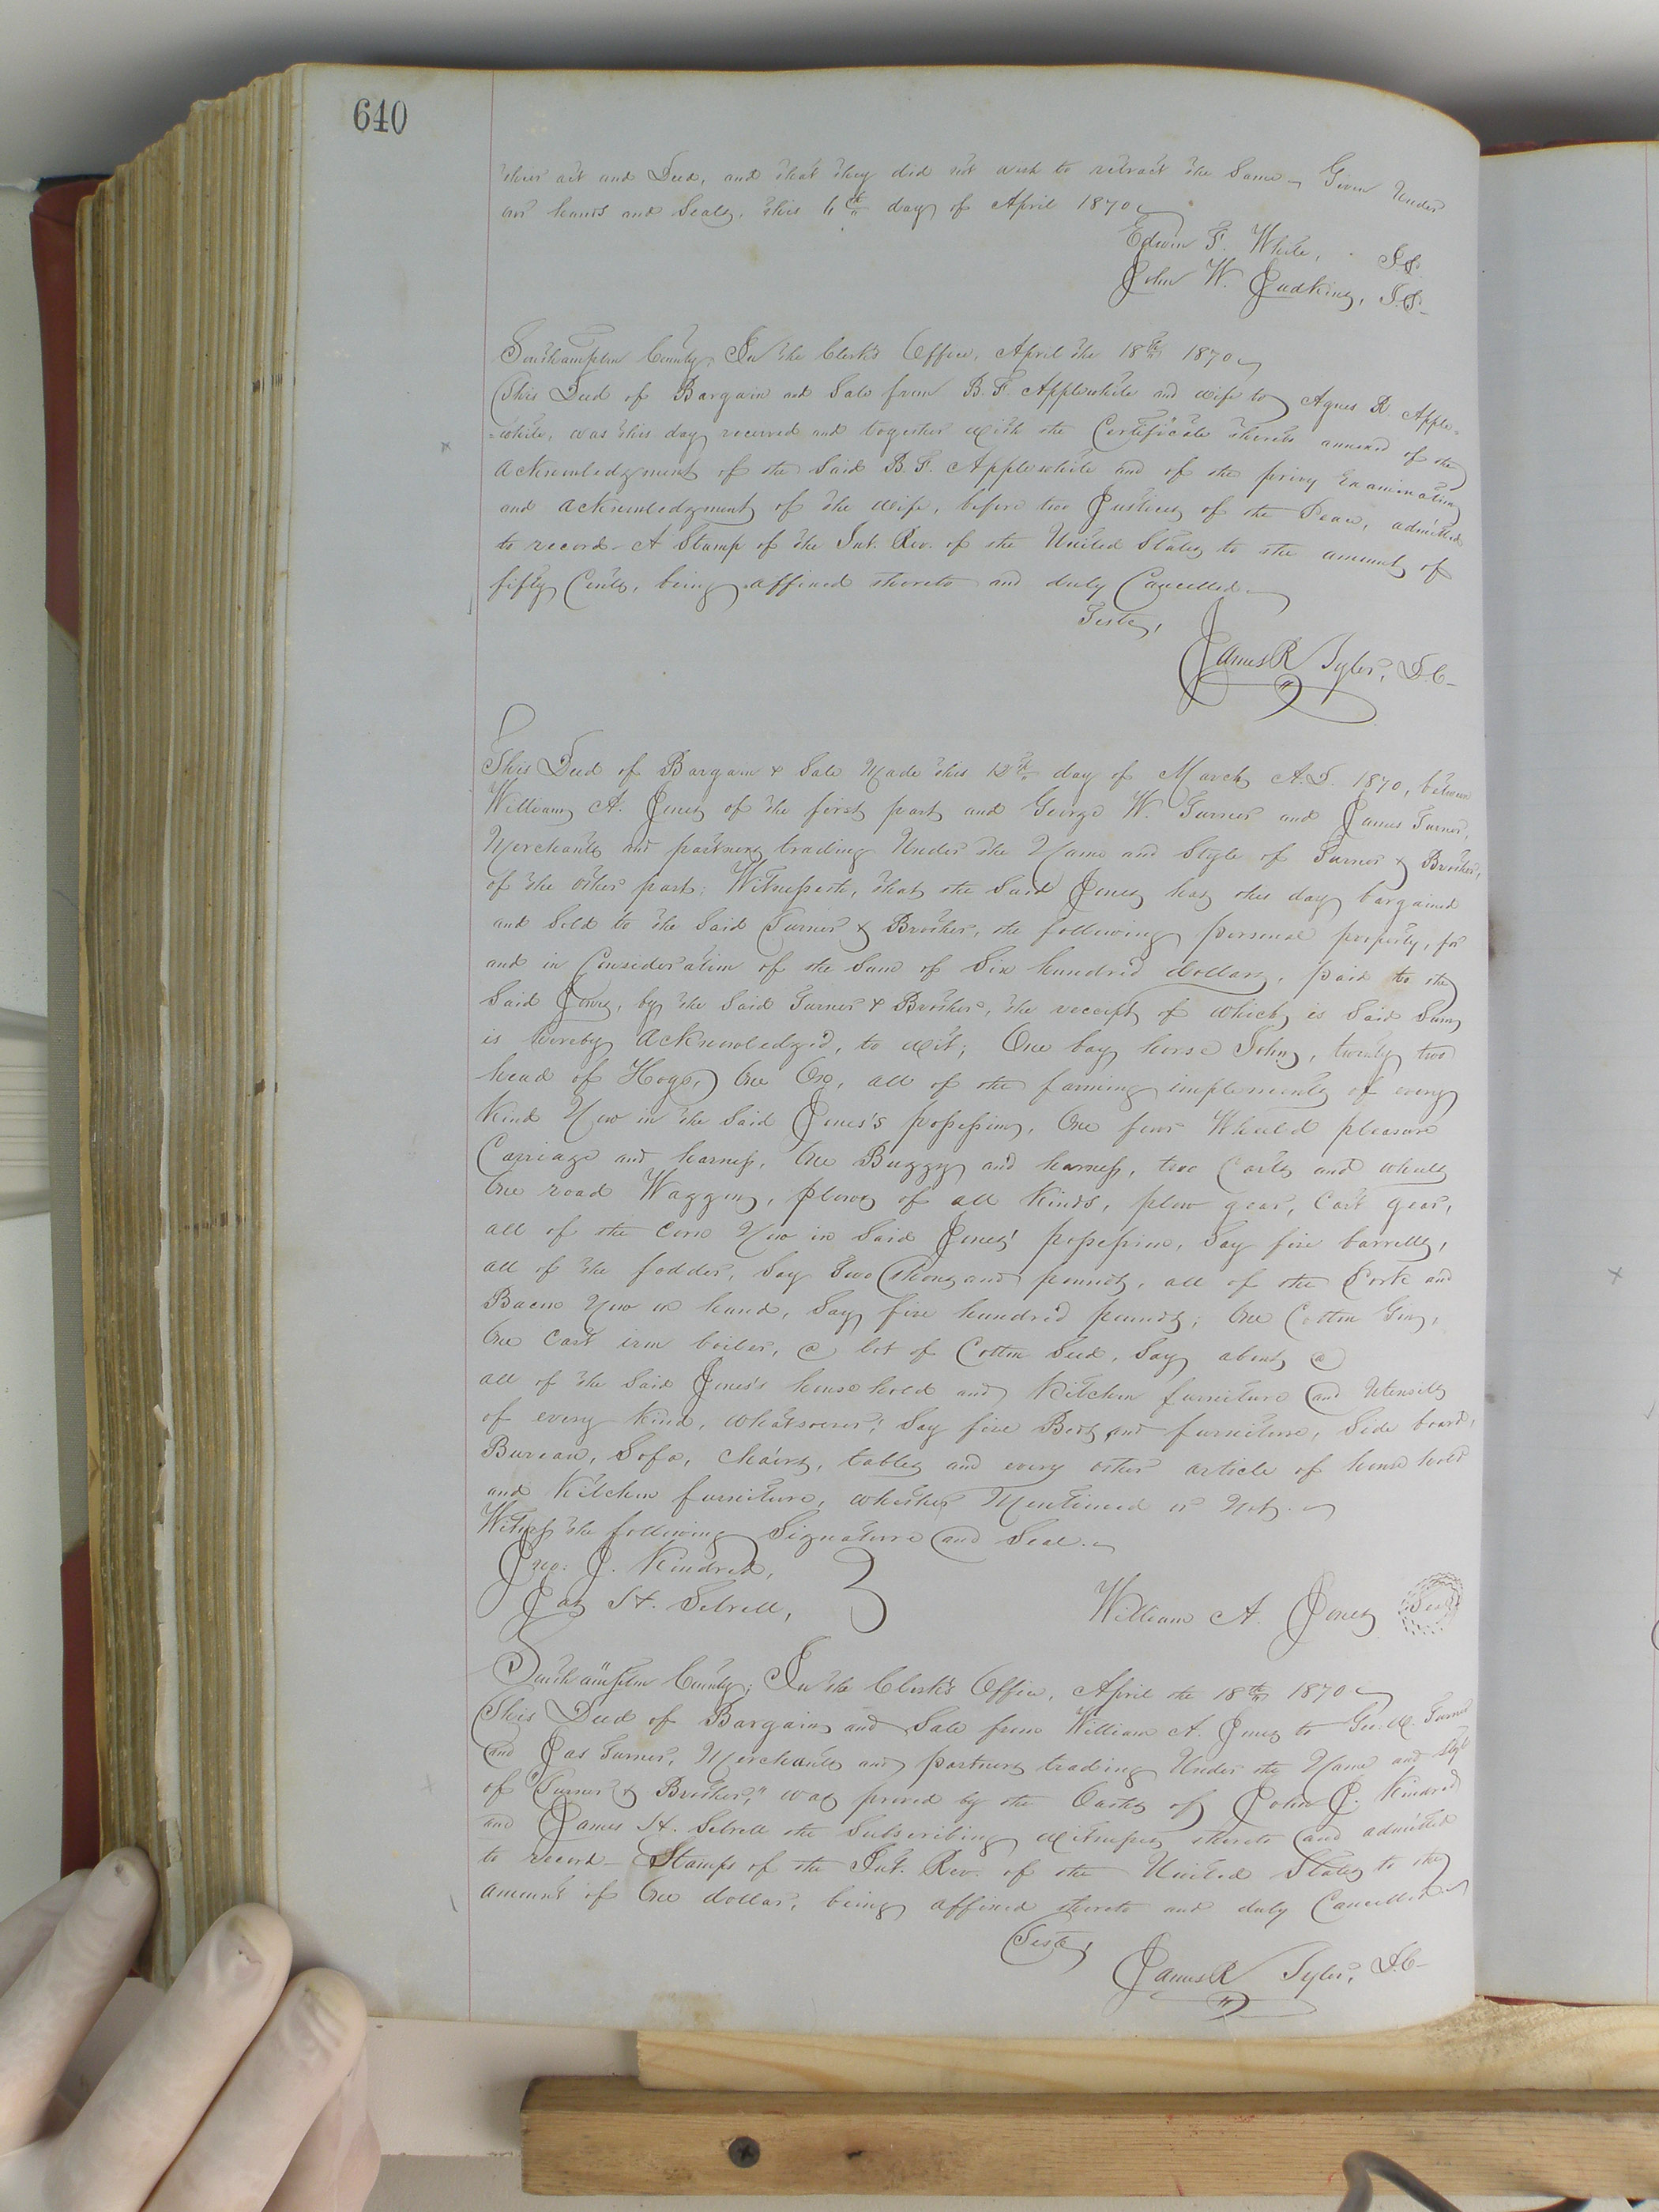 640
their act and Deed, and that they did not wish to retract the Same. Given Under
our hands and Seals, this 11th day of April 1870
Edwin F. White, J.P.
John W. Judkins, J.P.
Southampton County; In the Clerk's Office, April the 18th 1870
This Deed of Bargain and Sale from B. F. Applewhite and wife to Agnes R. Apple-
=white, was this day received and together with the Certificate thereto annexed of the
acknowledgment of the Said B. F. Applewhite and of the privy Examination
and acknowledgment of the wife, before two Justices of the Peace, admitted
to record - A Stamp of the Int. Rev. of the United States to the amount of
fifty Cents, being affixed thereto and duly Cancelled.
Teste,
James R Tyler, D.C.
This Deed of Bargain & Sale Made this 12th day of March A.D. 1870, between
William A. Jones of the first part and George W. Turner and James Turner,
Merchants and partners trading Under the Name and Style of Turner & Brother,
of the other part: Witnesseth, that the Said Jones has this day bargained
and Sold to the Said Turner & Brother, the following personal property, for
and in Consideration of the Sum of Six hundred dollars, paid to the
Said Jones, by the Said Turner & Brother, the receipt of which is Said Sum
is hereby acknowledged, to wit; One bay horse John, twenty two
head of Hogs, One Ox, all of the farming implements of every
Kind Now in the Said Jones's possession, One four Wheeled pleasure
Carriage and harness, One Buggy and harness, two Carts and wheels
One road Waggon, plows of all Kinds, plow gear, Cart gear,
all of the Corn Now in Said Jones' possession, Say five barrells,
all of the fodder, Say Two thousand pounds, all of the Pork and
Bacon Now on hand, Say five hundred pounds; One Cotton Gin,
One Cast iron boiler, a lot of Cotton Seed, Say about a
all of the Said Jones's household and Kitchen furniture and Utensils
of every Kind, whatsoever; Say five Beds and furniture, Side board,
Bureau, Sofa, Chairs, tables and every other article of house hold
and Kitchen furniture, whether Mentioned or Not.
Witness the following Signature and Seal.
Jno: J. Kindred,
Jas H. Sebrell,
William A. Jones Seal
Southampton County; In the Clerk's Office, April the 18th 1870
This Deed of Bargain and Sale from William A. Jones to Geo. W. Turner
and Jas Turner, Merchants and partners trading Under the Name and Style
of "Turner & Brother," was proved by the Oaths of John J. Kindred
and James H. Sebrell the Subscribing witnesses thereto and admitted
to record - Stamps of the Int. Rev. of the United States to the
amount of One dollar, being affixed thereto and duly Cancelled
Teste,
James R Tyler, D.C.